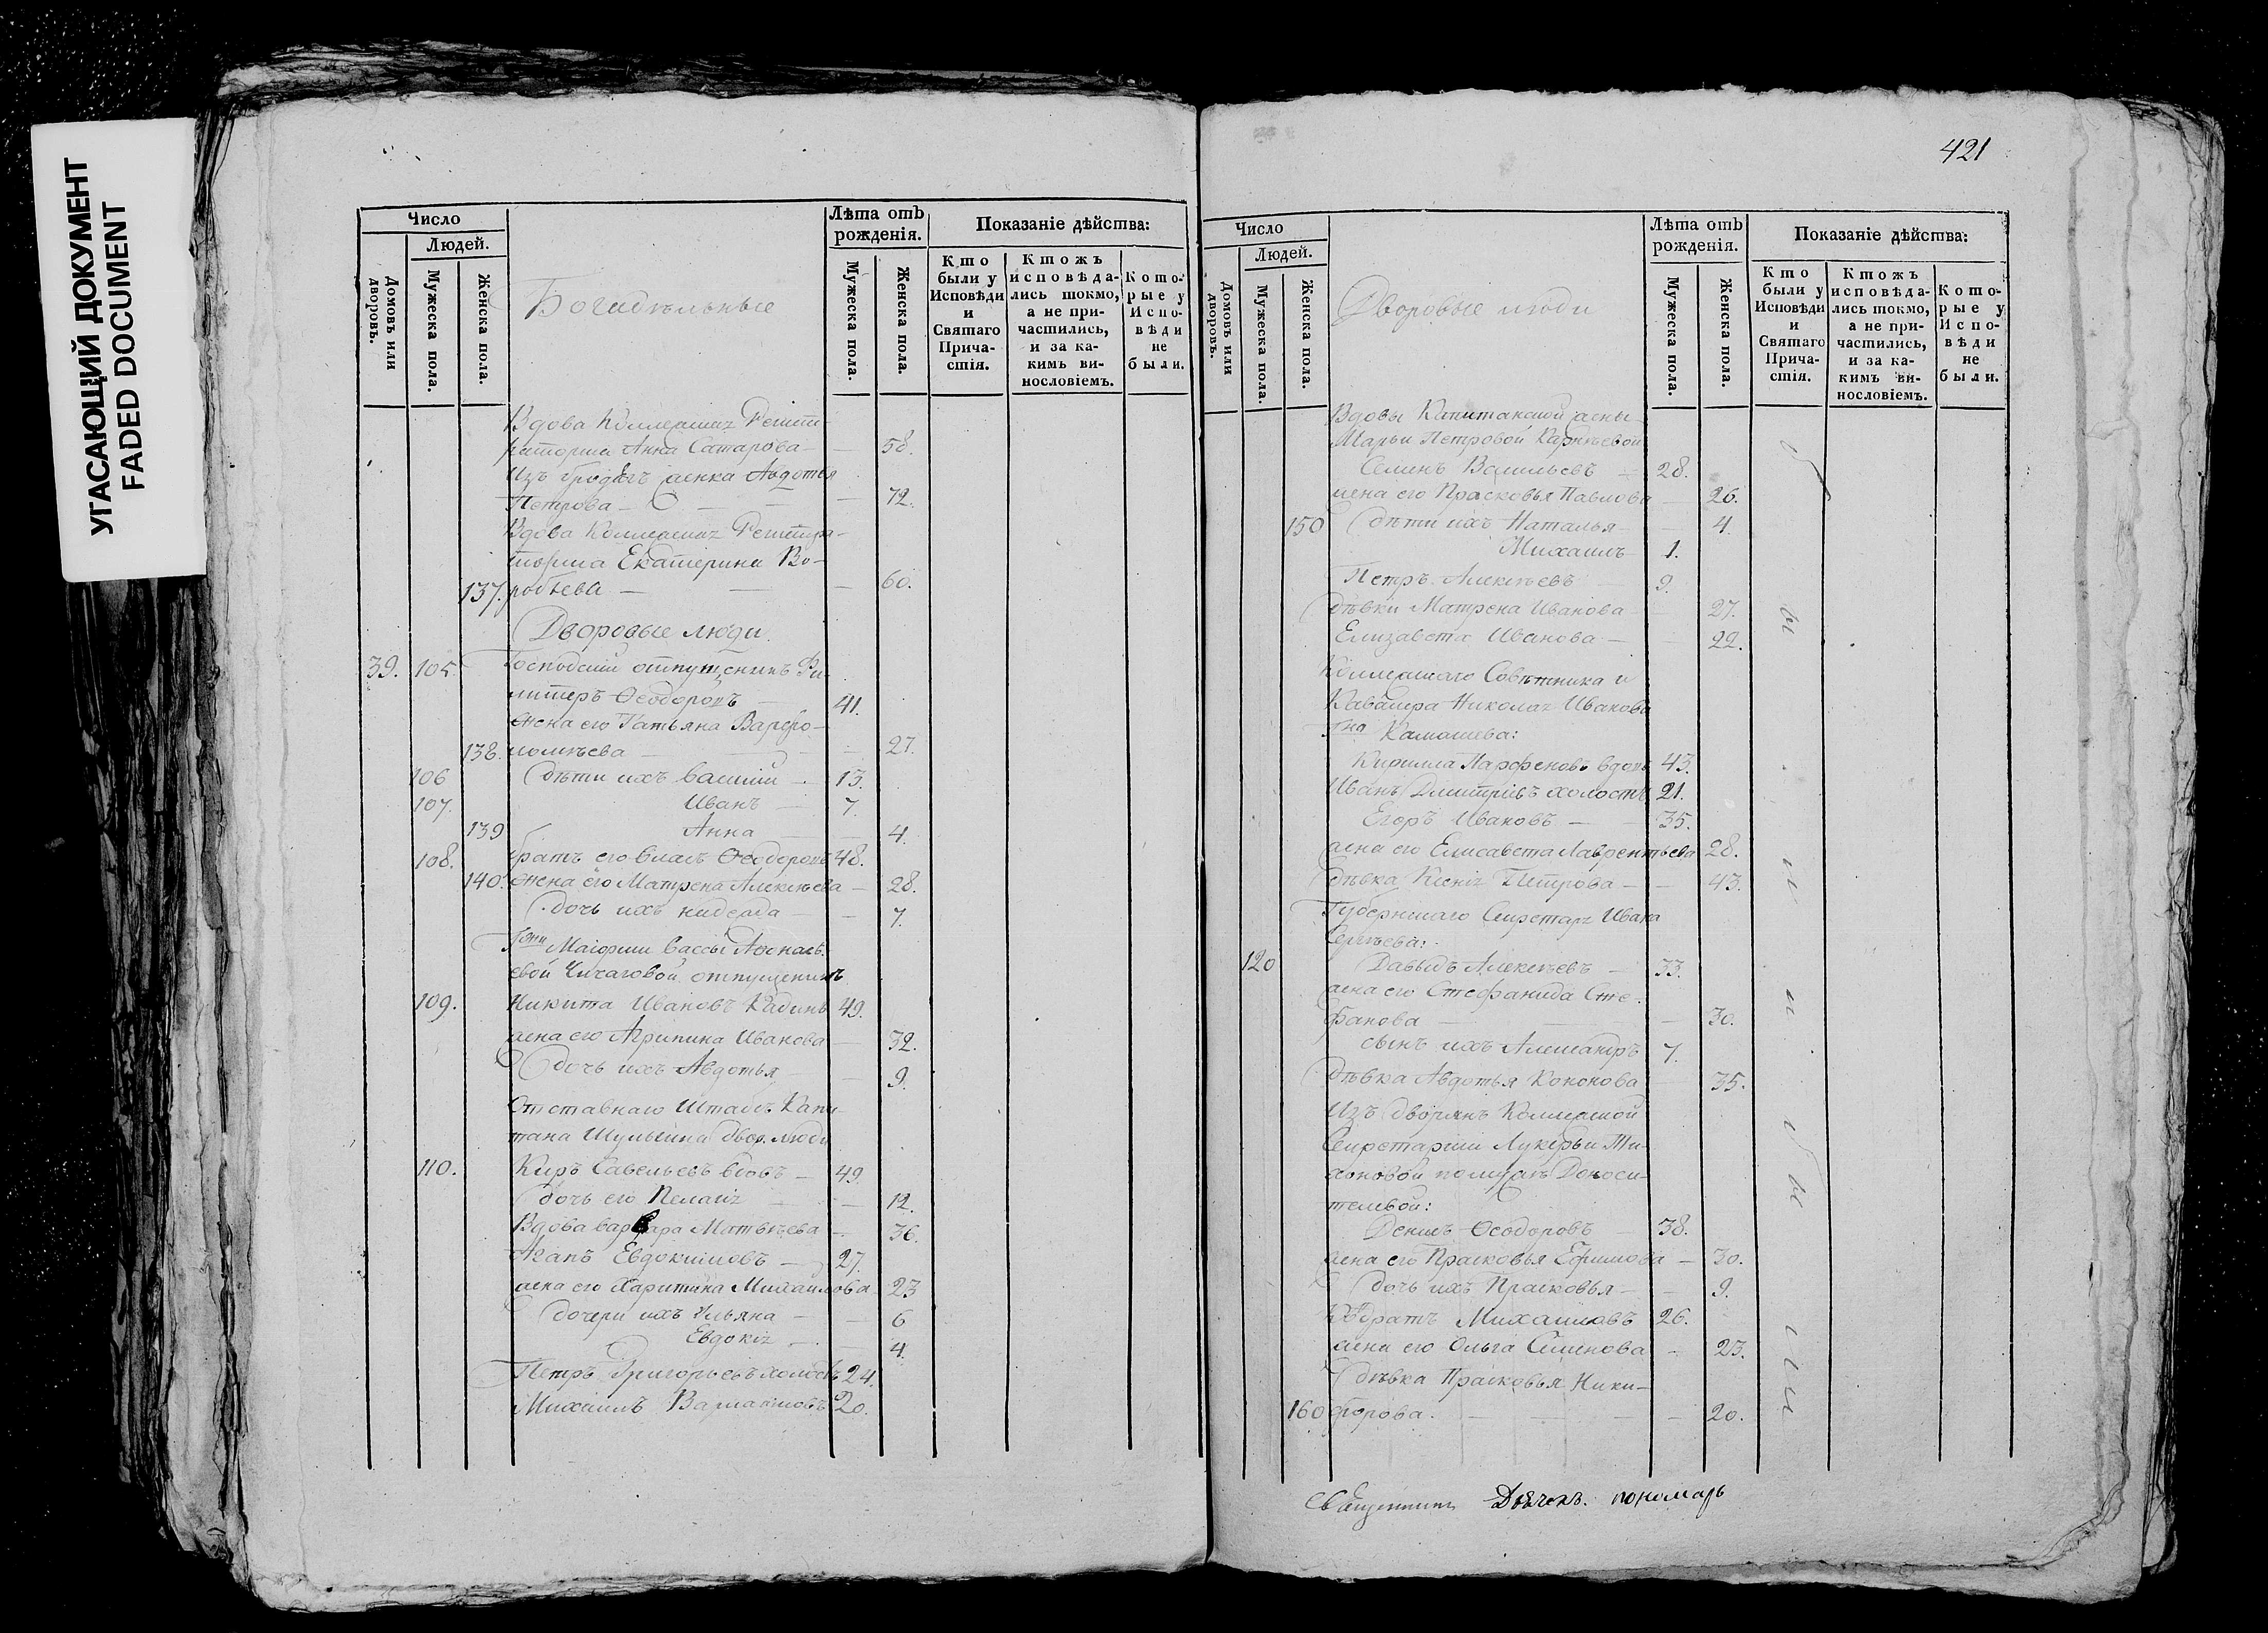 УГАСАЮЩИЙ ДОКУМЕНТ
FADED DOCUMENT
Число
Людей.
Домовъ или дворовъ.
Мужеска пола.
Женска пола.
Богадѣльные
Лѣта отъ рожденія.
Мужеска пола.
Женска пола.
Показаніе дѣйства:
Кто были у Исповѣди и Святаго Прича-стія.
Ктожъ исповѣда-лись токмо, а не при-частились, и за ка-кимъ ви-нословіемъ.
Кото-рые у Испо-вѣди не были.
Вдова Коллежская Регист-
раторша Анна Сатарова — 58.
женка Авдотья
Петрова — 72.
Вдова Коллежская Регистра-
торша Екатерина Во-
137. робьева — 60.
Дворовые люди.
39. 105. Господскій отпущеникъ Фи-
Ѳеодоровъ 41.
жена его Татьяна Варфо-
138. ломѣева — 27.
106 дѣти ихъ Василій 13.
107. Иванъ 7.
139 Анна — 4.
108. братъ его Власъ Ѳеодоровъ 48.
140. жена его Матрена Алексѣева — 28.
дочь ихъ Надежда — 7.
Гжи Маіорши Вассы Афонась-
евой Чичаговой отпущеникъ
109. Никита Ивановъ Кадинъ 49.
жена его Агрипина Иванова — 32.
дочь ихъ Авдотья — 9.
Отставнаго Штабсъ Капи-
тана Шульгина двор. люди
110. Киръ Савельевъ вдовъ — 49.
дочь его Пелагія — 12.
Вдова Варвара Матвѣева — 36.
Агапъ Евдокимовъ — 27.
жена его Харитина Михаилова 23
дочери ихъ Ульяна — 6
Евдокія — 4.
Петръ Григорьевъ холостъ 24.
Михаилъ 20.
421
Число
Людей.
Домовъ или дворовъ.
Мужеска пола.
Женска пола.
Дворовые люди
Лѣта отъ рожденія.
Мужеска пола.
Женска пола.
Показаніе дѣйства:
Кто были у Исповѣди и Святаго Прича-стія.
Ктожъ исповѣда-лись токмо, а не при-частились, и за ка-кимъ ви-нословіемъ.
Кото-рые у Испо-вѣди не были.
Вдовы Капитанской жены
Марьи Петровой Карнѣевой
Семенъ Васильевъ — 28.
жена его Прасковья Павлова 26.
150 дѣти ихъ Наталья — 4.
Михаилъ 1.
Петръ Алексѣевъ 9.
дѣвки Матрена Иванова 27.
Елизавета Иванова — 22.
Коллежскаго Совѣтника и
Кавалера Николая Иванова
Гна Камашева:
Кирилла Парфеновъ вдовъ 43.
Иванъ Дмитріевъ холостъ 21.
Егоръ Ивановъ — 35.
жена его Елисавета Лаврентьева 28.
дѣвка Ксенія Петрова — 43.
Губернскаго Секретаря Ивана
Сергѣева:
120 Давыдъ Алексѣевъ — 33.
жена его Стефанида Сте-
фанова — 30.
сынъ ихъ Александръ 7.
дѣвка Авдотья Кононова 35.
Изъ дворянъ Коллежской
Секретарши Лукерьи Ти-
хоновой
тельвой:
Денисъ Ѳеодоровъ 38.
жена его Прасковья Ефимова — 30.
дочь ихъ Прасковья — 9.
Михаиловъ 26.
жена его Ольга Семенова — 23.
дѣвка Прасковья Ники-
160 форова. — 20.
были
Священникъ Дьячекъ. пономарь